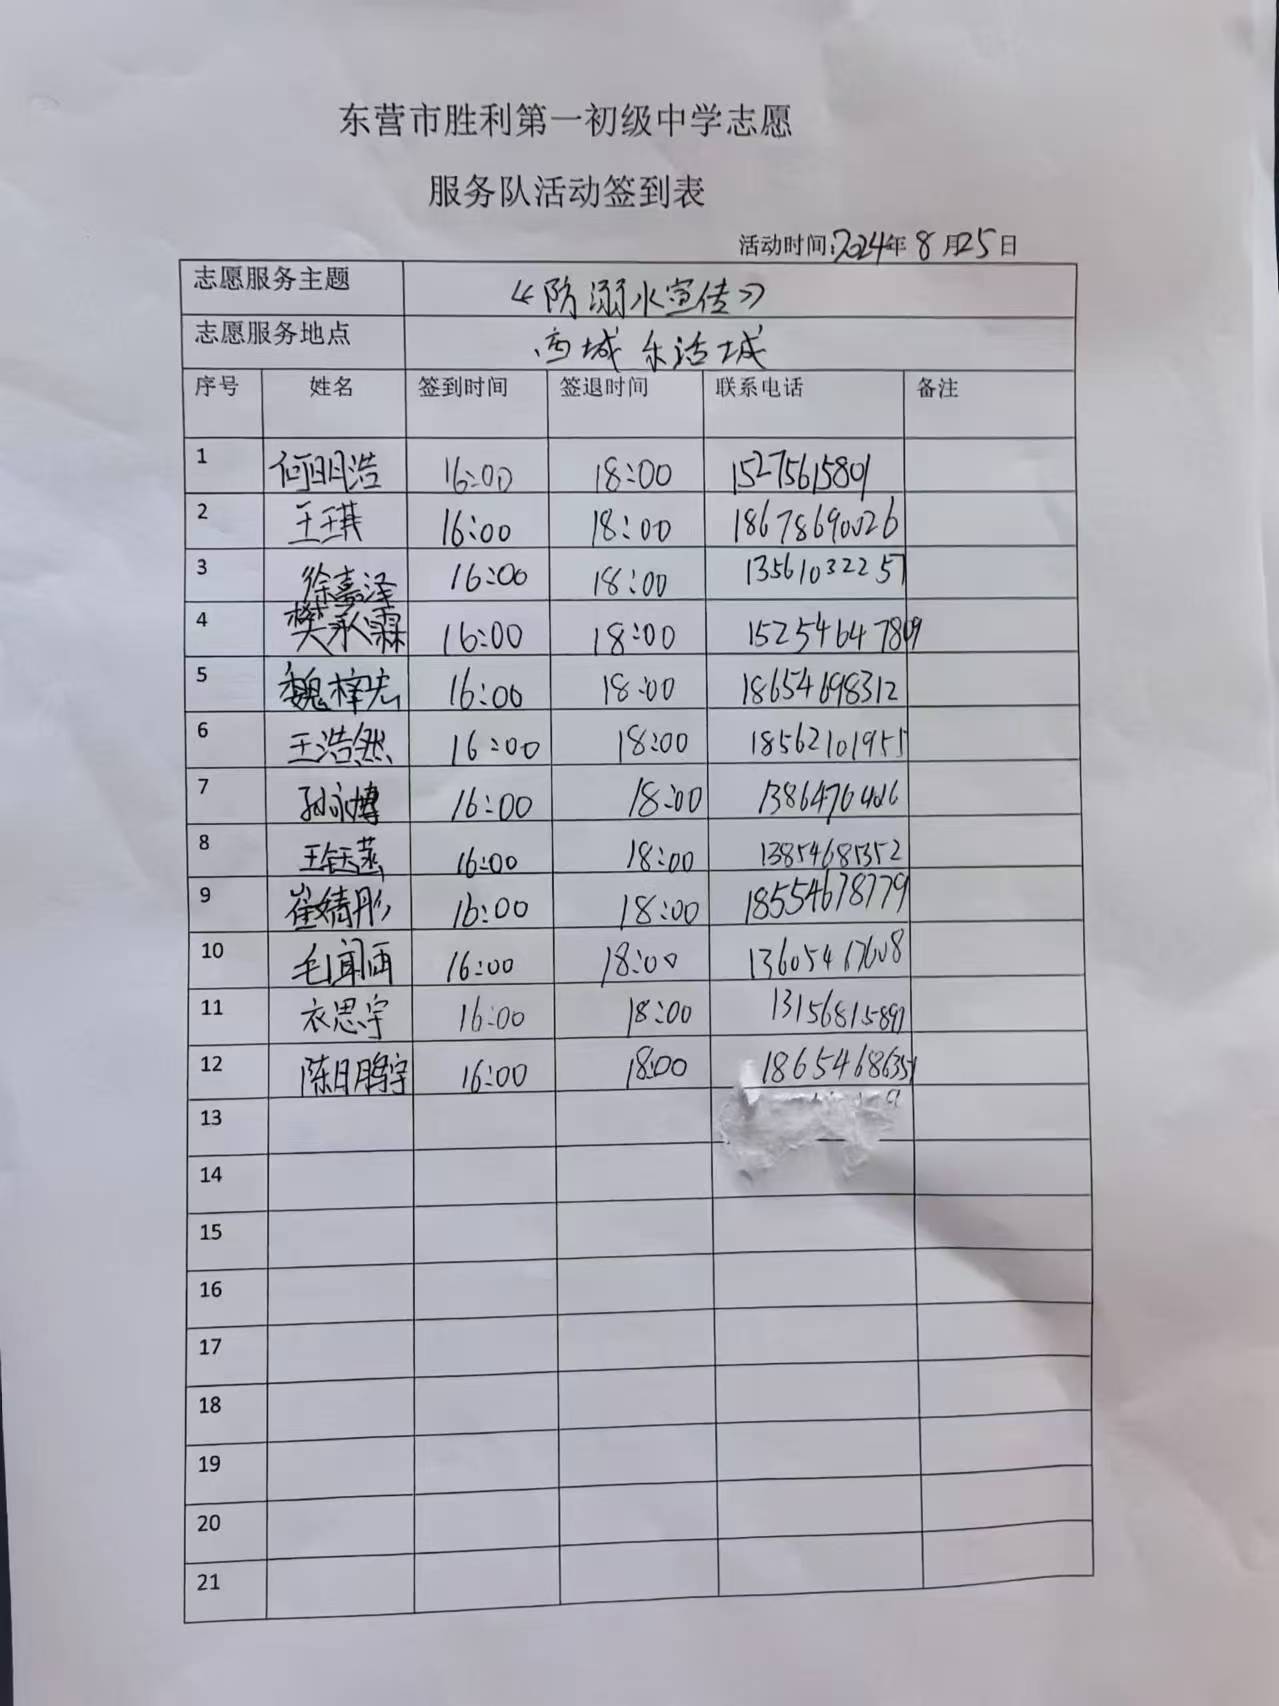 东营市胜利第一初级中学志愿
服务队活动签到表
活动时间:2024年8月25日
志愿服务主题 《防溺水宣传》
志愿服务地点 西城乐活城
序号 姓名 签到时间 签退时间 联系电话 备注
1 何明浩 16:00 18:00 15275615801
2 王琪 16:00 18:00 18678690026
3 徐嘉泽 16:00 18:00 13561032257
4 樊秋霖 16:00 18:00 15254647809
5 魏梓宏 16:00 18:00 18654698312
6 王浩然 16:00 18:00 18562101955
7 孙永博 16:00 18:00
8 王钰菡 16:00 18:00 13854685352
9 崔婧彤 16:00 18:00 18554678779
10 毛闻雨 16:00 18:00 13605467608
11 衣思宇 16:00 18:00 13156815897
12 陈鹏宇 16:00 18:00 18654686351
13
14
15
16
17
18
19
20
21